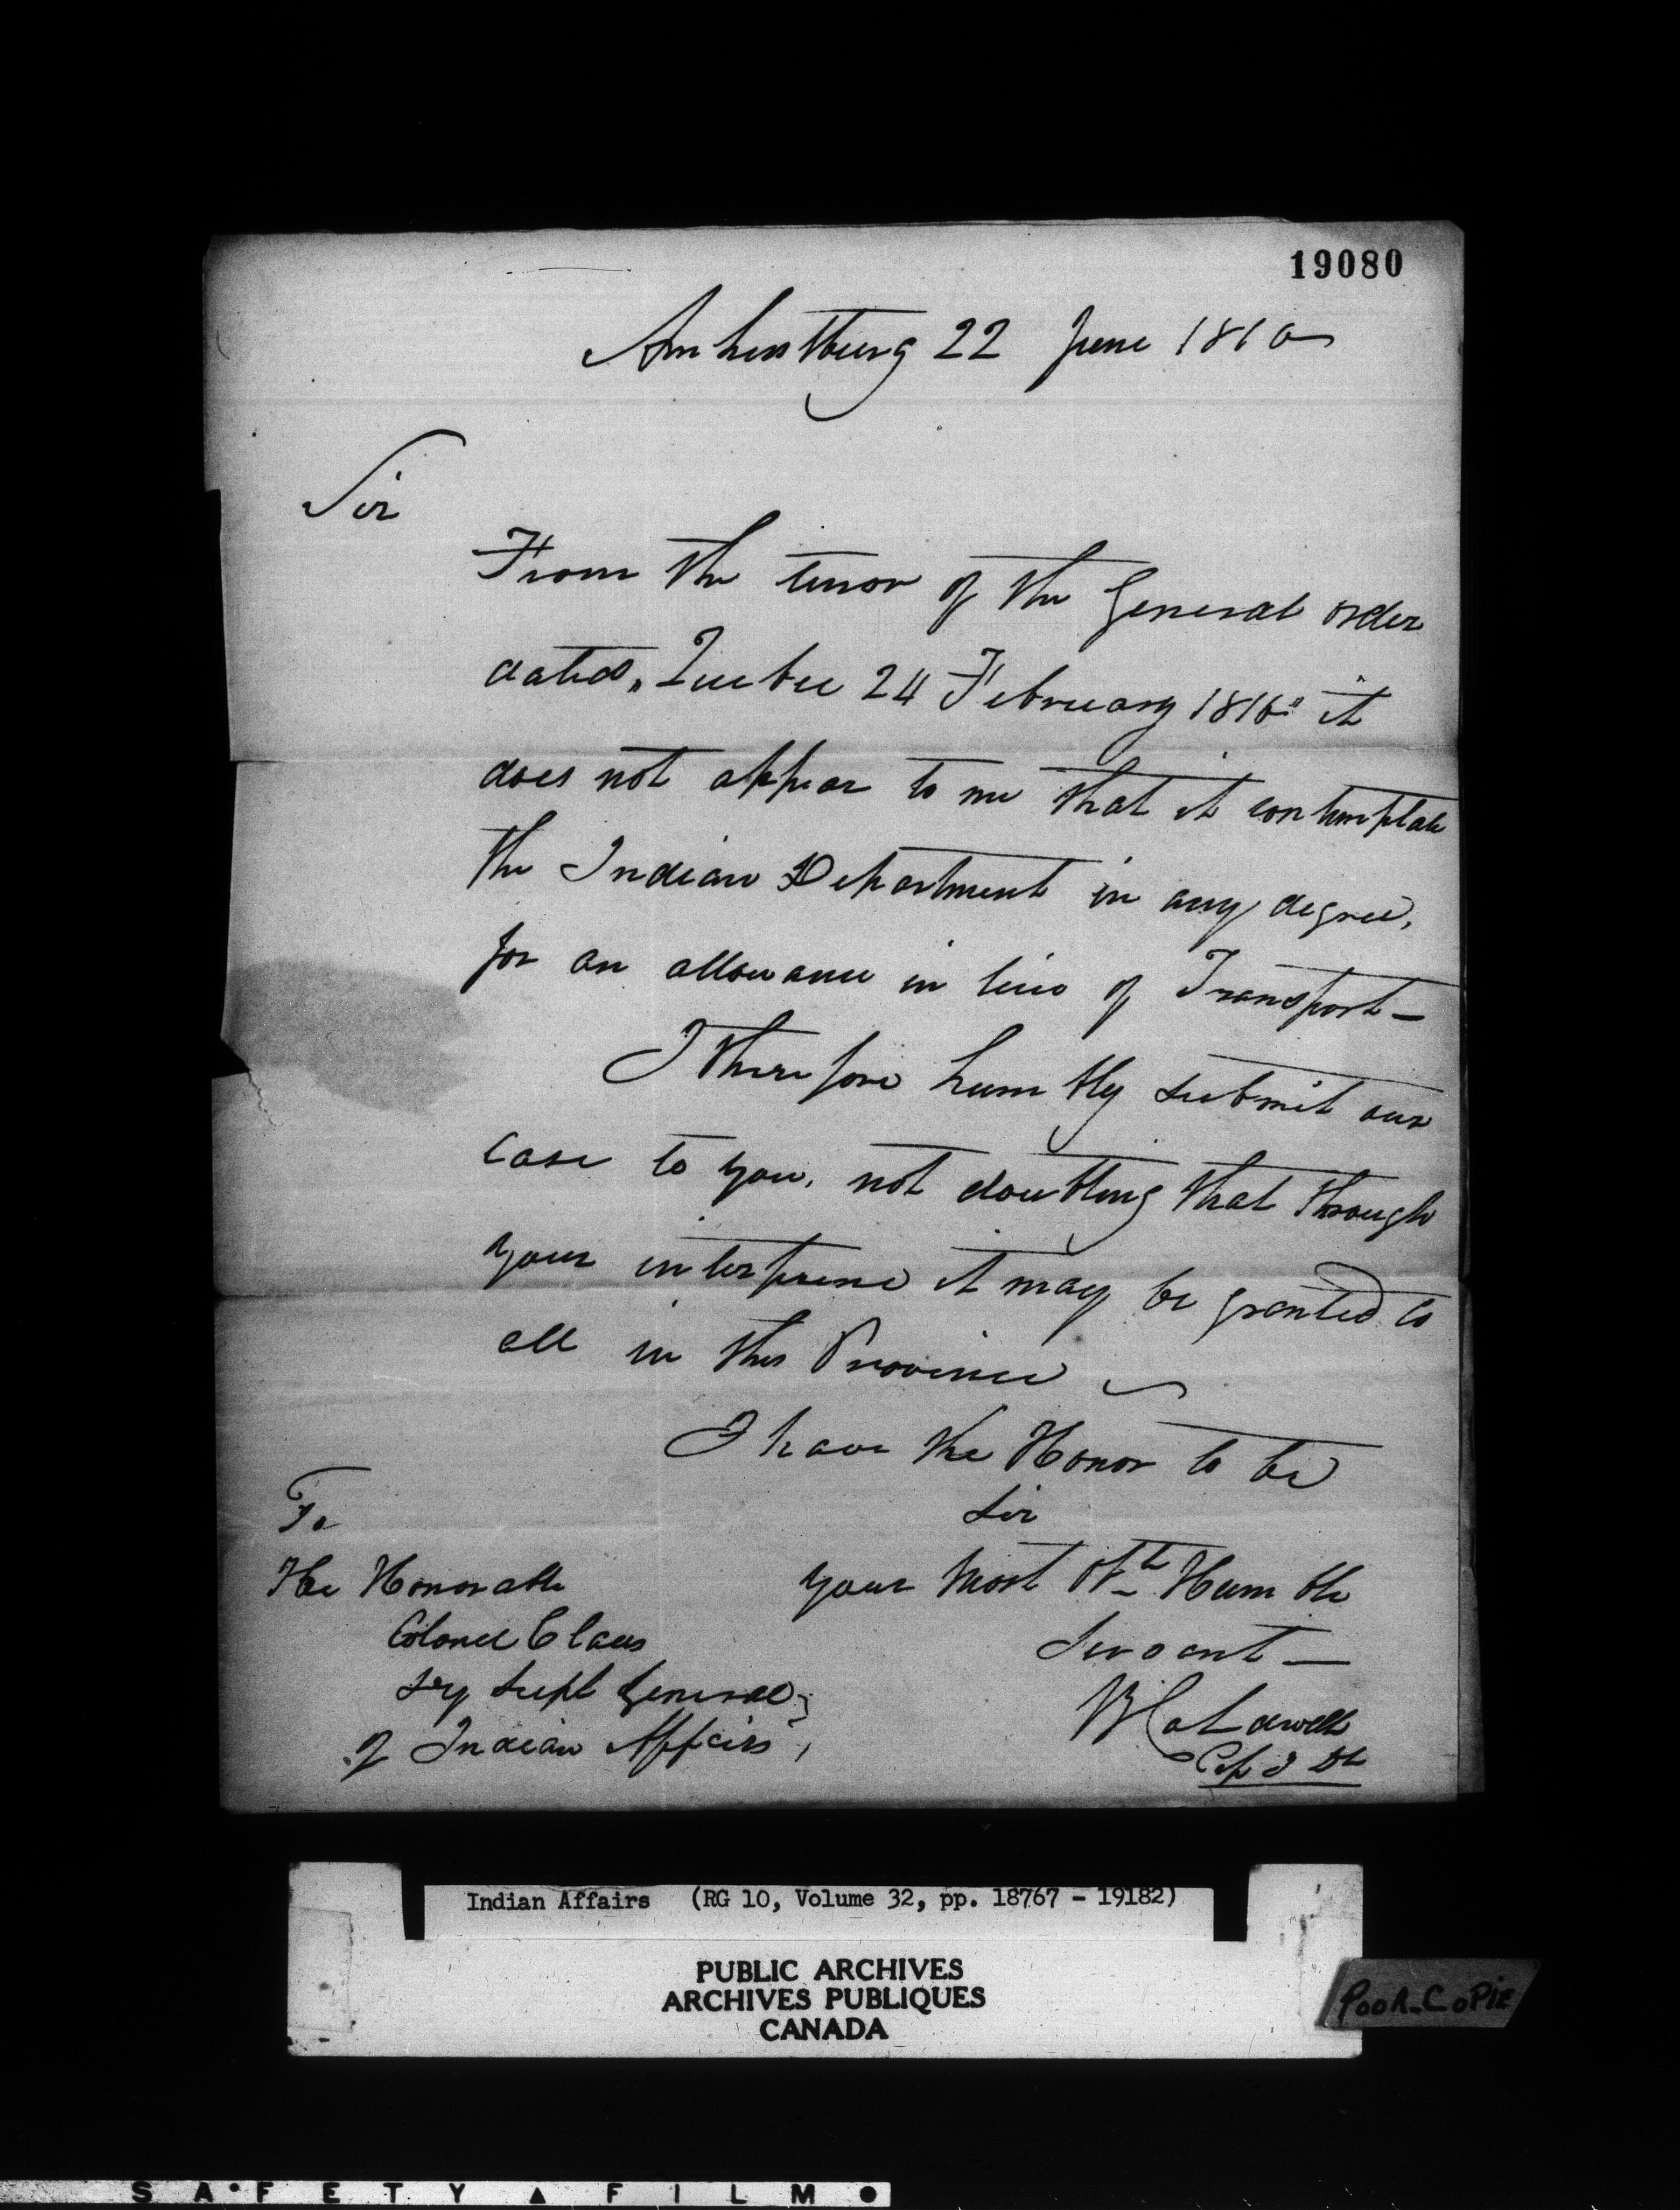 19080
Amherstburg 22 June 1816
Sir
From the tenor of the General order
dated, Quebec 24 February 1816 it
does not appear to me that it contemplate
the Indian Department in any degree,
for an allowance in lieu of Transport —
I therefore humbly submit our
case to you, not doubting that through
your interferene it may be granted to
all in this Province
I have the Honor to be
Sir
your most Obt Humble
Servant —
W Caldwell
To
The Honorable
Colonel Claus
Dy Supt General
of Indian Affairs
Indian Affairs (RG 10, Volume 32, pp. 18767 - 19182)
PUBLIC ARCHIVES
ARCHIVES PUBLIQUES
CANADA
POOR COPIE
SAFETY FILM